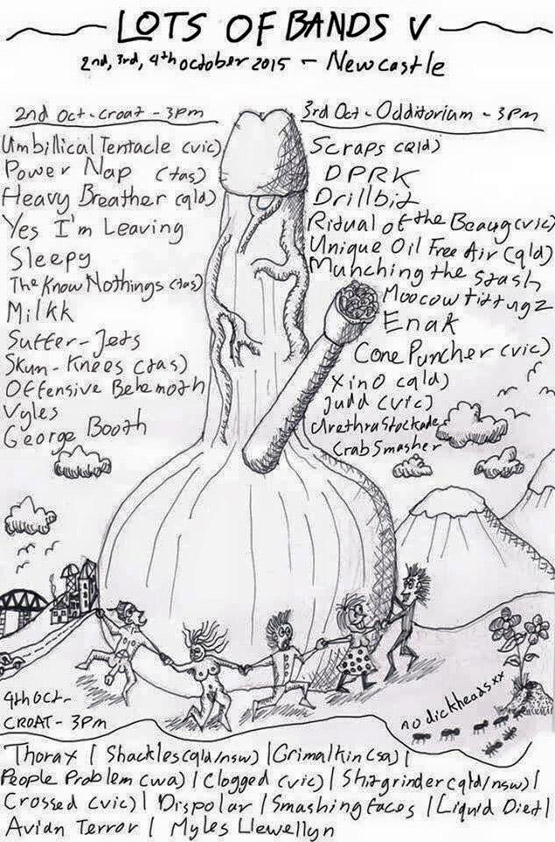 LOTS OF BANDS V
2nd, 3rd, 4th october 2015 - Newcastle
2nd Oct - Croat - 3pm
Umbillical Tentacle (vic)
Power Nap (tas)
Heavy Breather (qld)
Yes I'm Leaving
Sleepy
The Know Nothings (tas)
Milkk
Suffer-Jets
Skum-Knees (tas)
Offensive Behemoth
Vyles
George Booth
3rd Oct - Odditorium - 3pm
Scraps (qld)
DPRK
Drillbit
Ritual of the Beaug (vic)
Unique Oil Free Air (qld)
Munching the Stash
Moocowtittugz
Enak
Cone Puncher (vic)
Xino (qld)
Judd (vic)
Urethra Stockade
Crab Smasher
no dickheads xx
4th Oct -
CROAT - 3pm
Thorax | Shackles (qld/nsw) | Grimalkin (sa) |
People Problem (wa) | Clogged (vic) | Shitgrinder (qld/nsw) |
Crossed (vic) | Dispolar | Smashing Faces | Liquid Diet |
Avian Terror | Myles Llewellyn